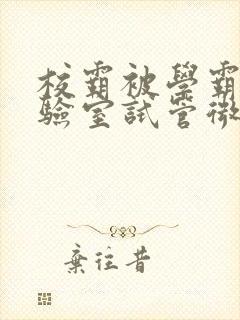 校霸被學霸
驗室試管微
棄往昔